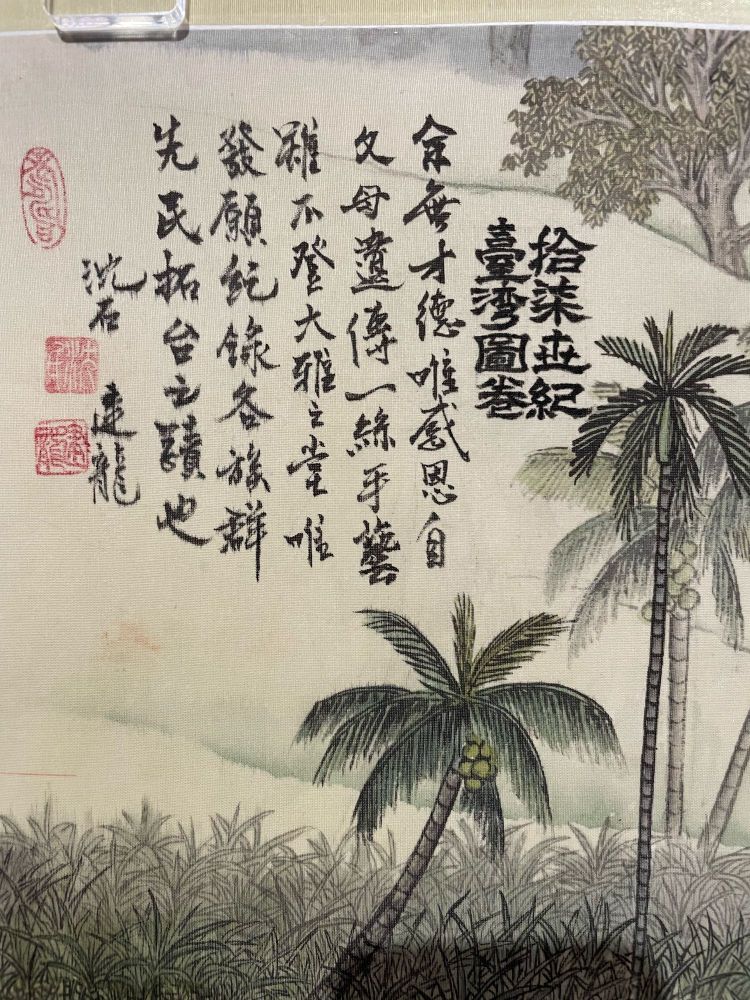 拾柒世紀
臺灣圖卷
余無才德唯感恩自
父母遺傳一絲手藝
雖不登大雅之堂唯
發願紀錄各族群
先民拓台之蹟也
沈石
建龍